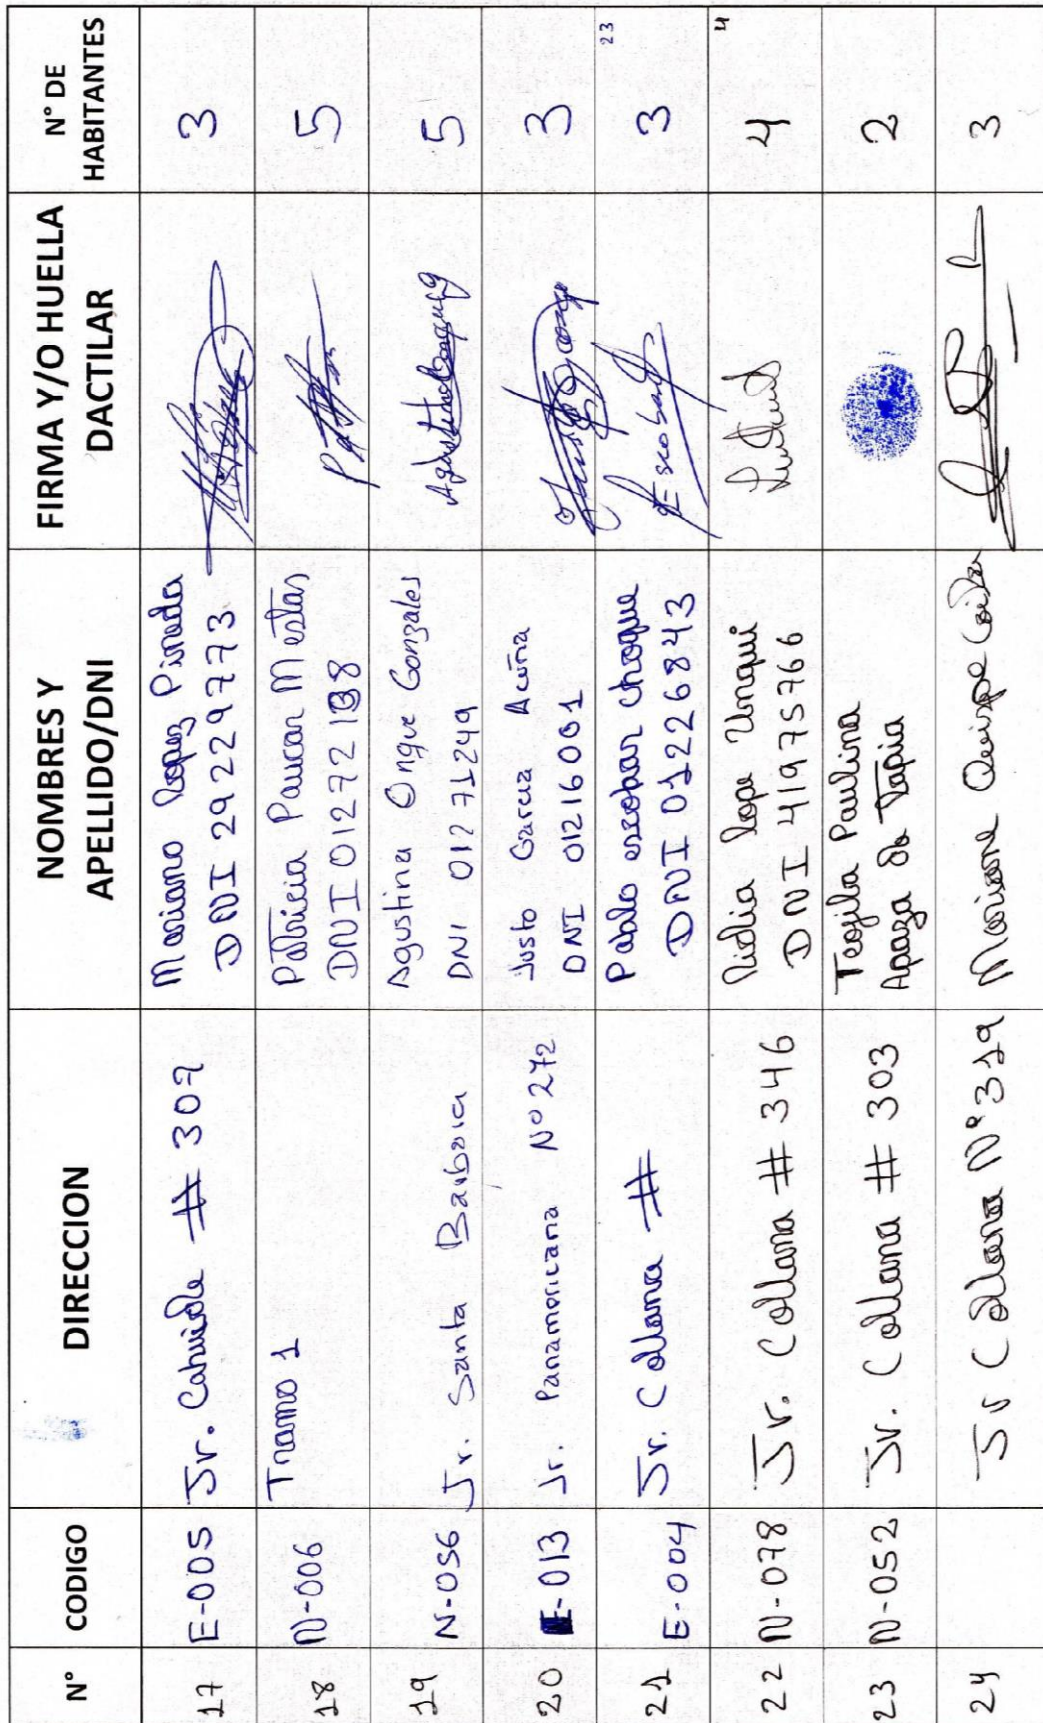 N° CODIGO DIRECCION NOMBRES Y APELLIDO/DNI FIRMA Y/O HUELLA DACTILAR N° DE HABITANTES
17 E-005 Jr. Cahuide # 307 Mariano Lopez Pineda 3
DNI 29229773
18 N-006 Tramo 1 Patricia Paucar Mestas 5
DNI 01272138
19 N-056 Jr. Santa Barbara Agustina Ongue Gonzales 5
DNI 01271249
20 E-013 Jr. Panamericana N° 272 Justo Garcia Acuña 3
DNI 01216001
23
21 E-004 Jr. Collana # Pablo escobar choque Escobar 3
DNI 01226843
4
22 N-078 Jr. Collana # 346 Lidia Lope Unqui 4
DNI 41975766
23 N-052 Jr. Collana # 303 Teofila Paulina 2
Apaza de Tapia
24 Jr Collana N° 319 Mariano Quispe 3